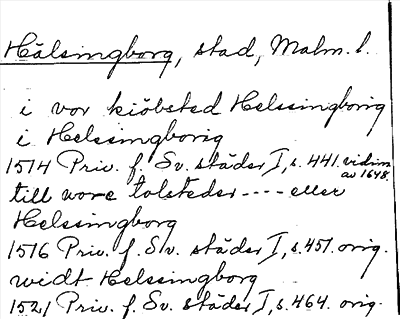 Hälsingborg, stad, Malm. l.
i vor kiöbsted Helssingborig
i Helssingborig
1514 Priv. f. Sv. städer I, s. 441. vidim. av 1648.
till wore tolsteder ---- eller
Helssingborg
1516 Priv. f. Sv. städer I, s. 457. orig.
widt Helssingborg
1521 Priv. f. Sv. städer I, s. 464. orig.